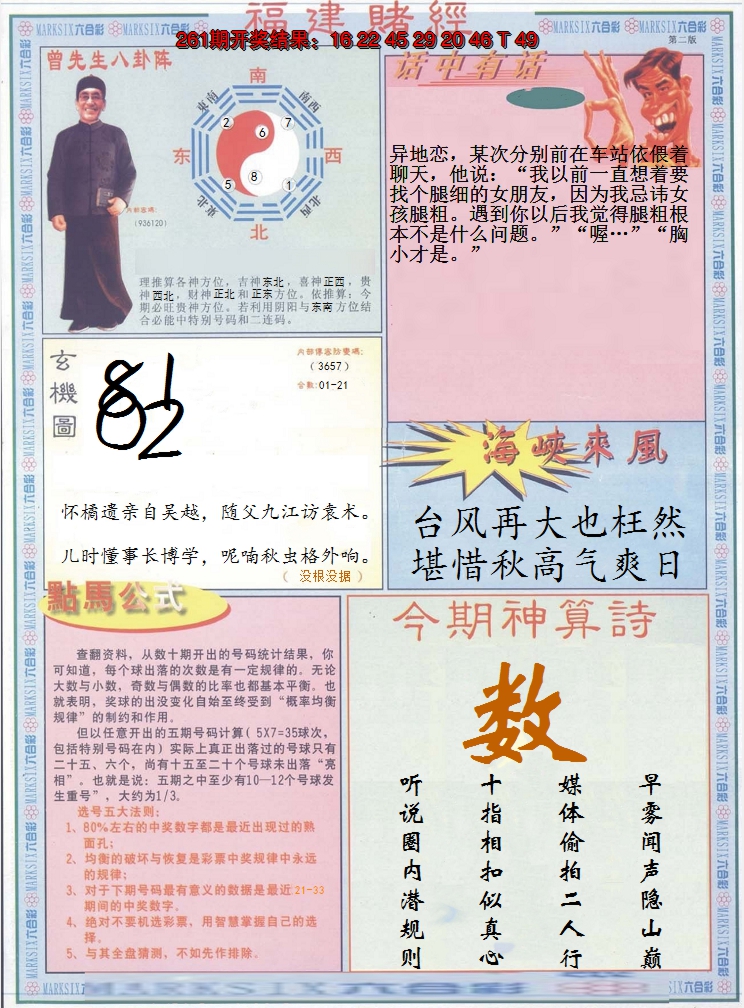 福建賭經
261期开奖结果：16 22 45 29 20 46 T 49
第二版
MARKSIX六合彩
曾先生八卦阵
南
东南
西南
东
西
东北
西北
北
2
6
7
5
8
1
内部密碼:
(936120)
理推算各神方位，吉神东北，喜神正西，贵
神西北，财神正北和正东方位。依推算：今
期必旺贵神方位。若利用阴阳与东南方位结
合必能中特别号码和二连码。
话中有话
异地恋，某次分别前在车站依偎着
聊天，他说：“我以前一直想着要
找个腿细的女朋友，因为我忌讳女
孩腿粗。遇到你以后我觉得腿粗根
本不是什么问题。”“喔…”“胸
小才是。”
玄機圖
(3657)
合数:01-21
怀橘遗亲自吴越，随父九江访袁术。
儿时懂事长博学，呢喃秋虫格外响。
（ 没根没据 ）
海峽來風
台风再大也枉然
堪惜秋高气爽日
點馬公式
查翻资料，从数十期开出的号码统计结果，你
可知道，每个球出落的次数是有一定规律的。无论
大数与小数，奇数与偶数的比率也都基本平衡。也
就表明，奖球的出没变化自始至终受到“概率均衡
规律”的制约和作用。
但以任意开出的五期号码计算( 5X7=35球次，
包括特别号码在内）实际上真正出落过的号球只有
二十五、六个，尚有十五至二十个号球未出落“亮
相”。也就是说：五期之中至少有10—12个号球发
生重号”，大约为1/3。
选号五大法则：
1、80%左右的中奖数字都是最近出现过的熟
面孔；
2、均衡的破坏与恢复是彩票中奖规律中永远
的规律；
3、对于下期号码最有意义的数据是最近21-33
期间的中奖数字。
4、绝对不要机选彩票，用智慧掌握自己的选
择。
5、与其全盘猜测，不如先作排除。
今期神算詩
数
早雾闻声隐山巅
媒体偷拍二人行
十指相扣似真心
听说圈内潜规则